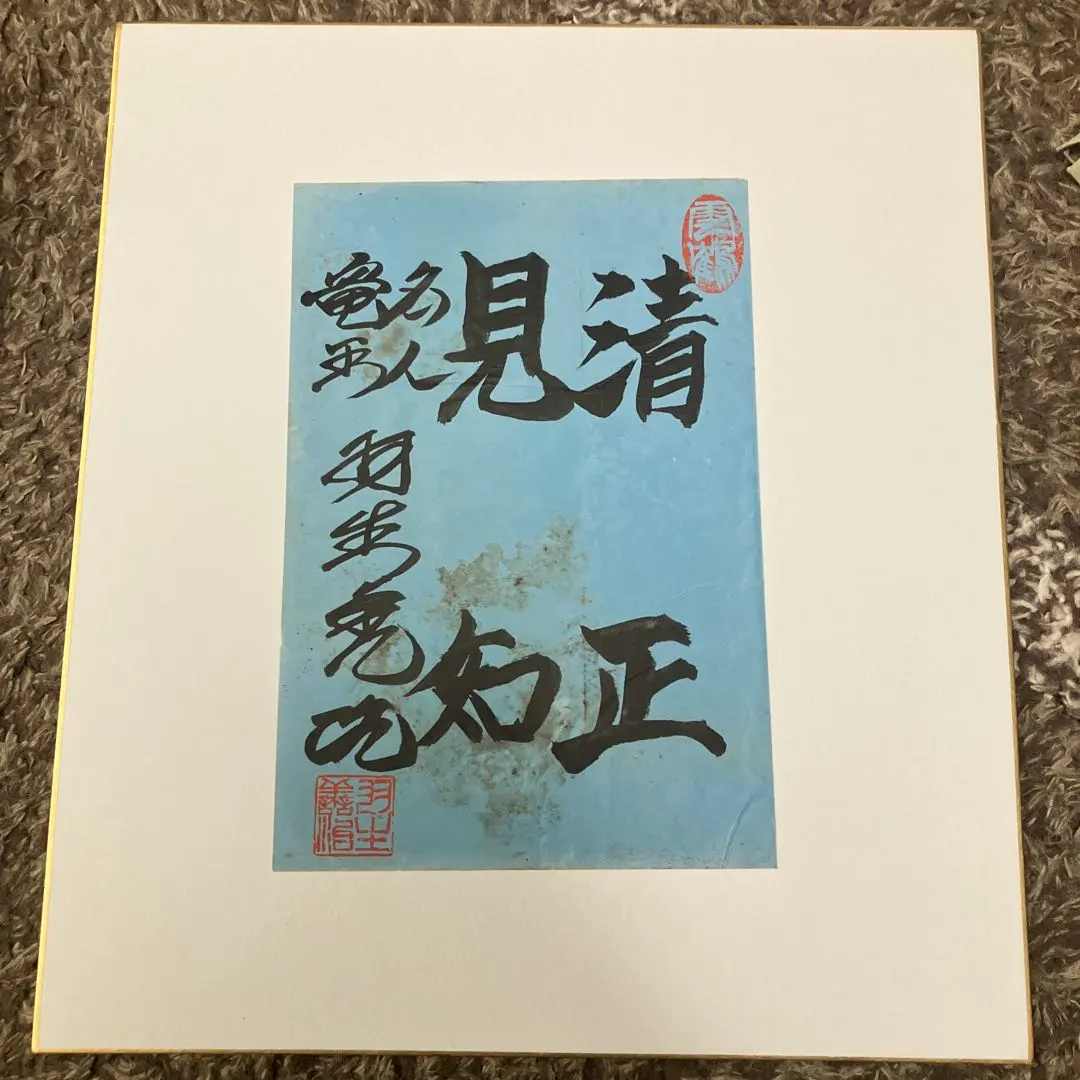 雲鶴
清正
見知
名人
竜王
羽生善治
羽生善治